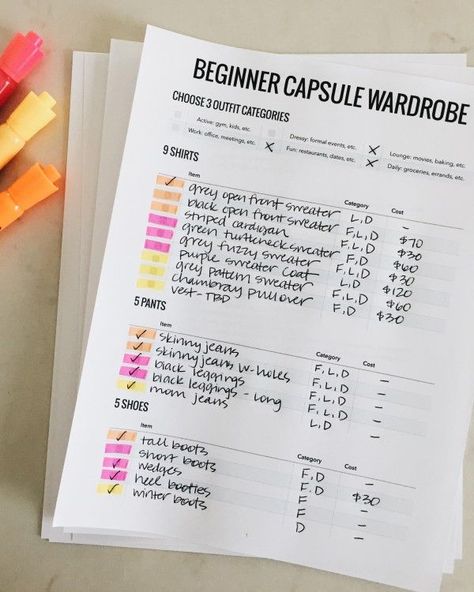 BEGINNER CAPSULE WARDROBE
CHOOSE 3 OUTFIT CATEGORIES
Active: gym, kids, etc. Dressy: formal events, etc. Lounge: movies, baking, etc.
Work: office, meetings, etc. Fun: restaurants, dates, etc. Daily: groceries, errands, etc.
9 SHIRTS
Item Category Cost
grey open front sweater L, D –
black open front sweater F, L, D $70
striped cardigan F, L, D $30
green turtleneck sweater F, D $60
grey fuzzy sweater F, L, D $30
purple sweater coat L, D $120
grey pattern sweater F, L, D $60
chambray pullover F, D $30
vest - TBD
5 PANTS
Item Category Cost
skinny jeans F, L, D –
skinny jeans w-holes F, L, D –
black leggings F, L, D –
black leggings - long F, L, D –
mom jeans L, D –
5 SHOES
Item Category Cost
tall boots F, D –
short boots F, D $30
wedges F –
heel booties F –
winter boots D –